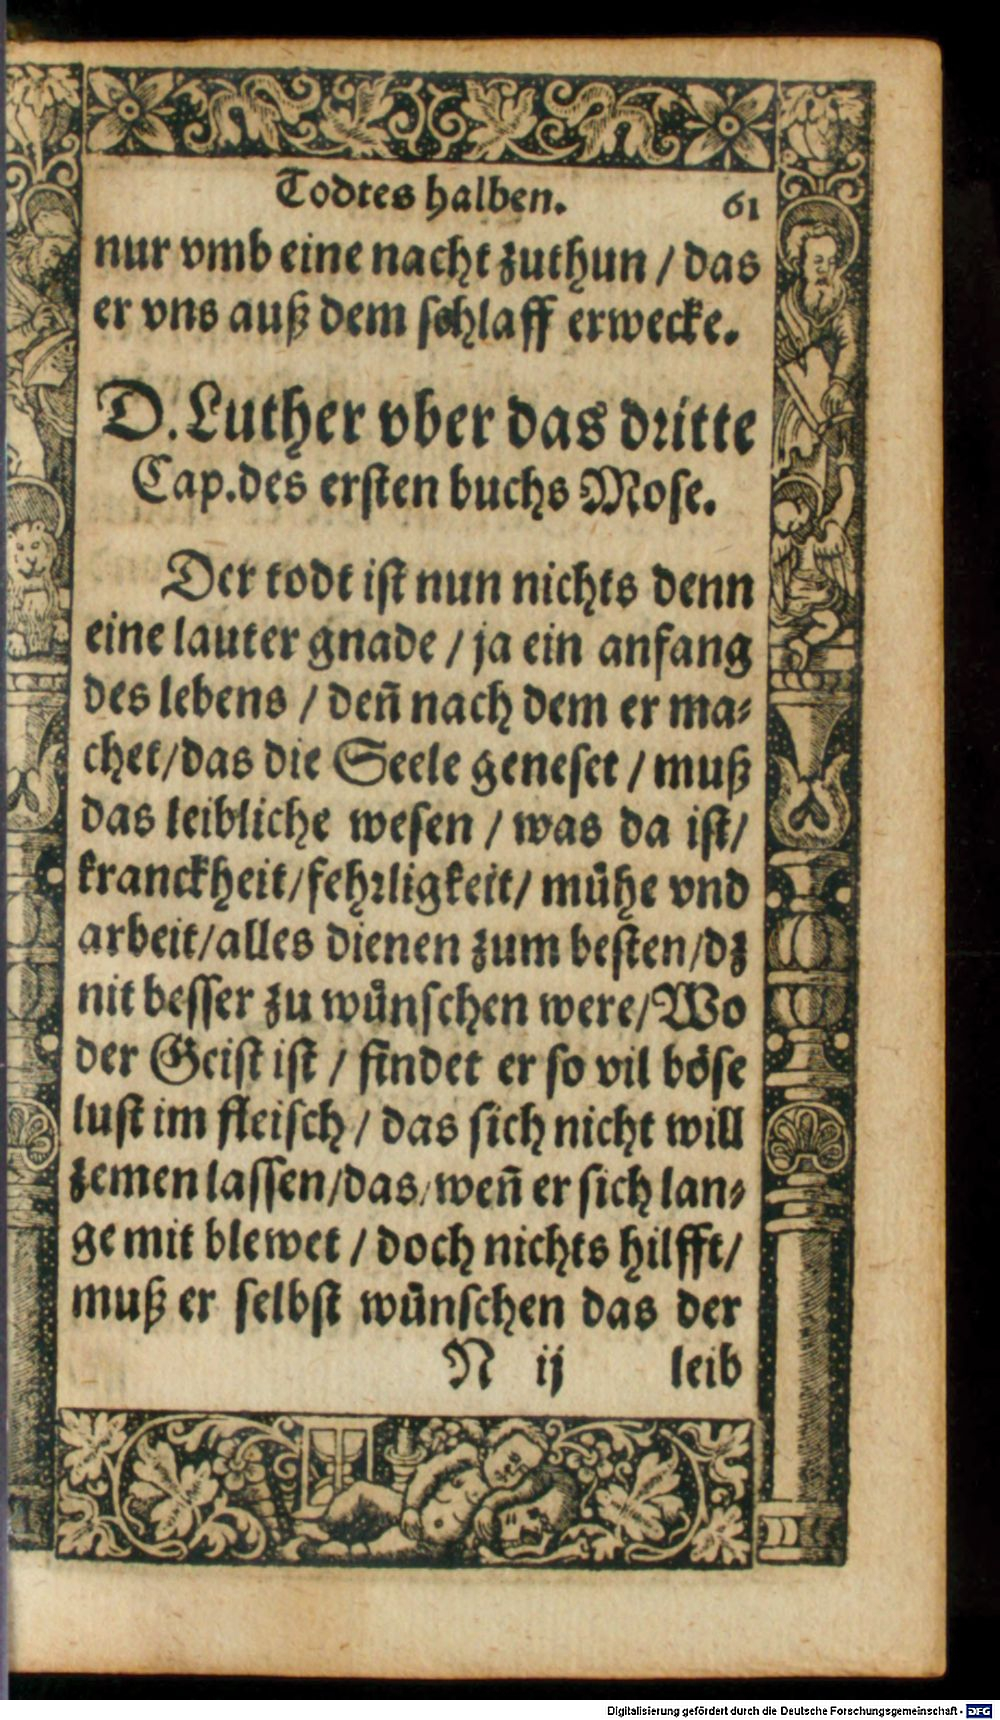 Todtes halben. 61
nur vmb eine nacht zuthun / das
er vns auß dem schlaff erwecke.
D. Luther vber das dritte
Cap. des ersten buchs Mose.
Der todt ist nun nichts denn
eine lauter gnade / ja ein anfang
des lebens / deñ nach dem er ma-
chet/das die Seele geneset / muß
das leibliche wesen / was da ist/
kranckheit/fehrligkeit/ mühe vnd
arbeit/alles dienen zum besten/dz
nit besser zu wünschen were/Wo
der Geist ist / findet er so vil böse
lust im fleisch / das sich nicht will
zemen lassen/das/weñ er sich lan-
ge mit blewet / doch nichts hilfft/
muß er selbst wünschen das der
N ij leib
Digitalisierung gefördert durch die Deutsche Forschungsgemeinschaft - DFG